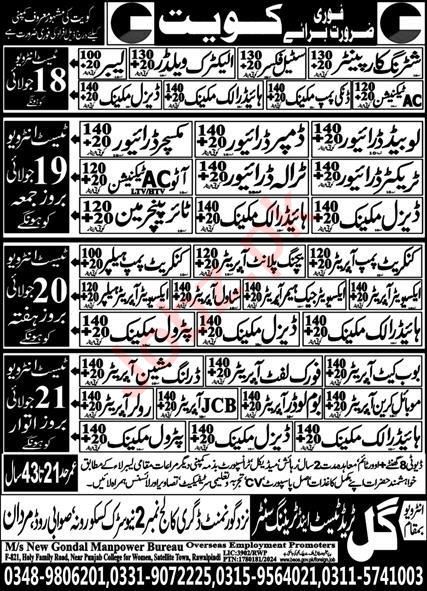 فوری
ضرورت برائے
کویت
شٹرنگ کارپینٹر 130+20 سٹیل فکسر 130+20 الیکٹرک ویلڈر 130+20 لیبر 100+20
AC ٹیکنیشن 120+20 ڈنکی پمپ مکینک 140+20 ہائیڈرالک مکینک 140+20 ڈیزل مکینک 140+20
ٹیسٹ انٹرویو
18 جولائی
کو ہونگے
لوبیڈ ڈرائیور 140+20 ڈمپر ڈرائیور 140+20 مکسچر ڈرائیور 140+20
ٹریکٹر ڈرائیور 140+20 ٹرالہ ڈرائیور 140+20 آٹو AC ٹیکنیشن 120+20 LTV/HTV
ڈیزل مکینک 140+20 ہائیڈرالک مکینک 140+20 ٹائر پنچر مین 120+20
ٹیسٹ انٹرویو
19 جولائی
بروز جمعہ
کو ہونگے
کنکریٹ پمپ آپریٹر 120+20 بیچنگ پلانٹ آپریٹر 120+20 کنکریٹ پمپ ہیلپر 100+20
ایکسویٹر آپریٹر 140+20 ایکسویٹر جیک ہیمر آپریٹر 140+20 شاول آپریٹر 140+20 ایکسویٹر آپریٹر ہیلپر 120+20
ہائیڈرالک مکینک 140+20 ڈیزل مکینک 140+20 پٹرول مکینک 140+20
ٹیسٹ انٹرویو
20 جولائی
بروز ہفتہ
کو ہونگے
بوب کیٹ آپریٹر 140+20 فورک لفٹ آپریٹر 140+20 ڈرلنگ مشین آپریٹر 140+20
موبائل کرین آپریٹر 140+20 بوم لوڈر آپریٹر 140+20 JCB آپریٹر 140+20 رولر آپریٹر 140+20
ہائیڈرالک مکینک 140+20 ڈیزل مکینک 140+20 پٹرول مکینک 140+20
ٹیسٹ انٹرویو
21 جولائی
بروز اتوار
کو ہونگے
ڈیوٹی 8 گھنٹے + اوور ٹائم معاہدہ مدت 2 سال رہائش میڈیکل ٹرانسپورٹ بذمہ کمپنی دیگر مراعات مقامی لیبر لاء کے مطابق
عمر حد 21 تا 43 سال
انٹرویو بمقام
گل ٹریڈ ٹیسٹ اینڈ ٹریننگ سنٹر
نزد گورنمنٹ ڈگری کالج نمبر 2 صوابی روڈ مردان
M/s New Gondal Manpower Bureau Overseas Employment Promoters
F-821, Holy Family Road, Near Punjab College for Women, Satellite Town, Rawalpindi LIC:3902/RWP PTN:1780181/2024
0348-9806201,0331-9072225,0315-9564021,0311-5741003